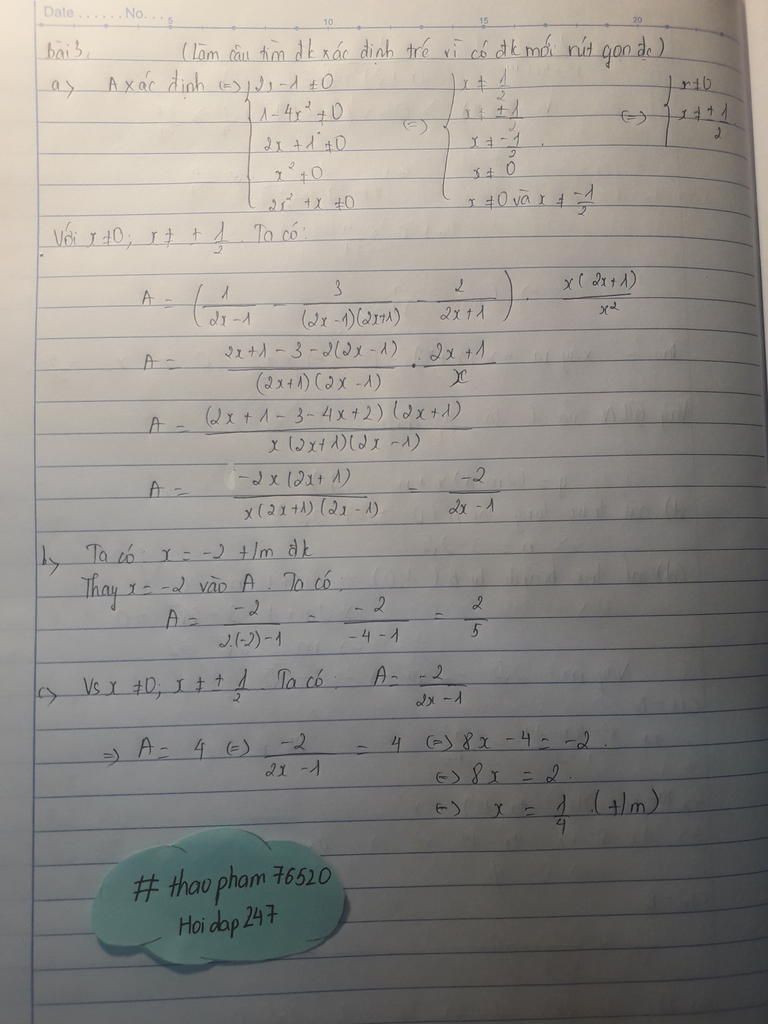 Date ....... No. ... 5 10 15 20
bài 3, (Làm câu tìm đk xác định trc vì có đk mới rút gọn đc)
a, A xác định <=> { 2x - 1 ≠ 0 { x ≠ 1/2 { x ≠ 0
1 - 4x² ≠ 0 <=> x ≠ ± 1/2 <=> x ≠ ± 1/2
2x + 1 ≠ 0 x ≠ -1/2
x² ≠ 0 x ≠ 0
2x² + x ≠ 0 x ≠ 0 và x ≠ -1/2
Với x ≠ 0; x ≠ ± 1/2. Ta có:
A = ( 1/(2x-1) - 3/((2x-1)(2x+1)) - 2/(2x+1) ) . x(2x+1)/x²
A = (2x+1-3-2(2x-1))/((2x+1)(2x-1)) . (2x+1)/x
A = ((2x+1-3-4x+2)(2x+1))/(x(2x+1)(2x-1))
A = -2x(2x+1)/(x(2x+1)(2x-1)) = -2/(2x-1)
b, Ta có: x = -2 t/m đk
Thay x = -2 vào A. Ta có:
A = -2/(2.(-2)-1) = -2/(-4-1) = 2/5
c, Vs x ≠ 0; x ≠ ± 1/2. Ta có: A = -2/(2x-1)
=> A = 4 <=> -2/(2x-1) = 4 <=> 8x - 4 = -2.
<=> 8x = 2.
<=> x = 1/4 (t/m)
# thaopham76520
Hoidap247